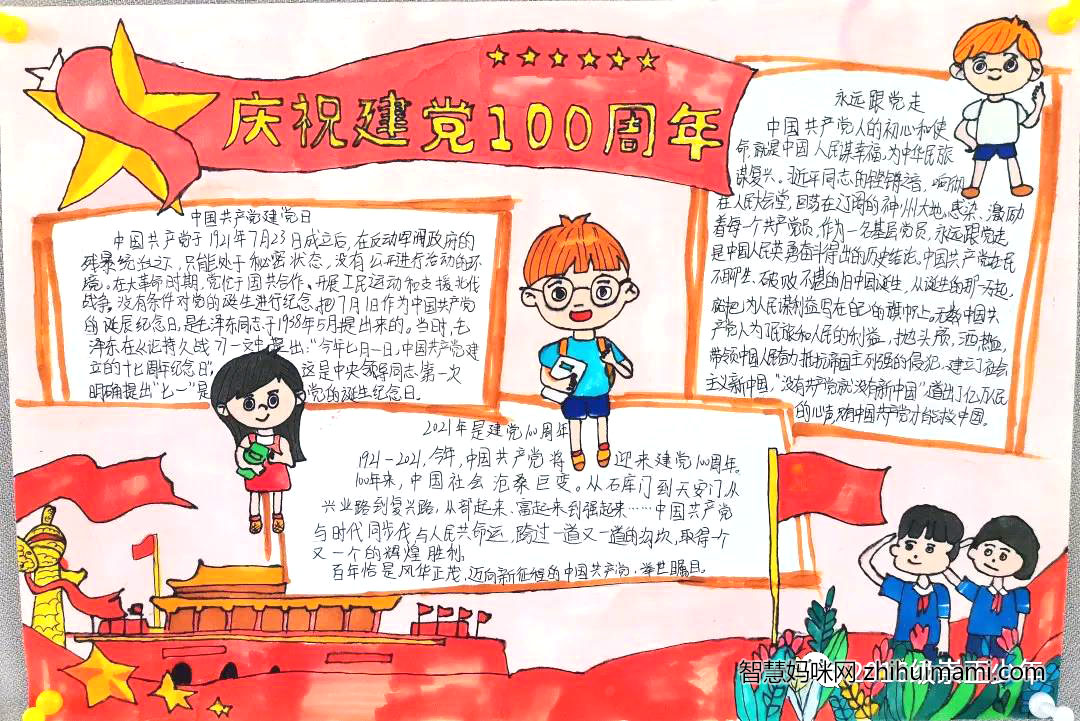 庆祝建党100周年
中国共产党建党日
中国共产党于1921年7月23日成立后,在反动军阀政府的
残暴统治之下,只能处于秘密状态,没有公开进行活动的环
境。在大革命时期,党忙于国共合作、开展工民运动和支援北伐
战争,没有条件对党的诞生进行纪念。把7月1日作为中国共产党
的诞辰纪念日,是毛泽东同志于1938年5月提出来的。当时,毛
泽东在《论持久战》一文中提出:"今年七月一日,中国共产党建
立的十七周年纪念日",这是中央领导同志第一次
明确提出"七一"是党的诞生纪念日。
永远跟党走
中国共产党人的初心和使
命,就是中国人民谋幸福,为中华民族
谋复兴。习近平同志的铿锵之音,响彻
在人民大会堂,回荡在辽阔的神州大地,感染、激励
着每一个共产党员。作为一名基层党员,永远跟党走
是中国人民英勇奋斗得出的历史结论。中国共产党在民
不聊生、破败不堪的旧中国诞生,从诞生的那一天起,
就把为人民谋利益写在自己的旗帜上。无数中国共
产党人为了民族和人民的利益,抛头颅,洒热血,
带领中国人民奋力抵抗帝国主列强的侵犯,建立了社会
主义新中国,"没有共产党就没有新中国"道出了亿万人民
的心声,有中国共产党才能救中国。
2021年是建党100周年
1921-2021,今年,中国共产党将迎来建党100周年。
100年来,中国社会沧桑巨变。从石库门到天安门,从
兴业路到复兴路,从站起来、富起来到强起来……中国共产党
与时代同步伐与人民共命运,跨过一道又一道的沟坎,取得一个
又一个的辉煌胜利
百年恰是风华正茂,迈向新征程的中国共产党,举世瞩目。
智慧妈咪网 zhihuimami.com